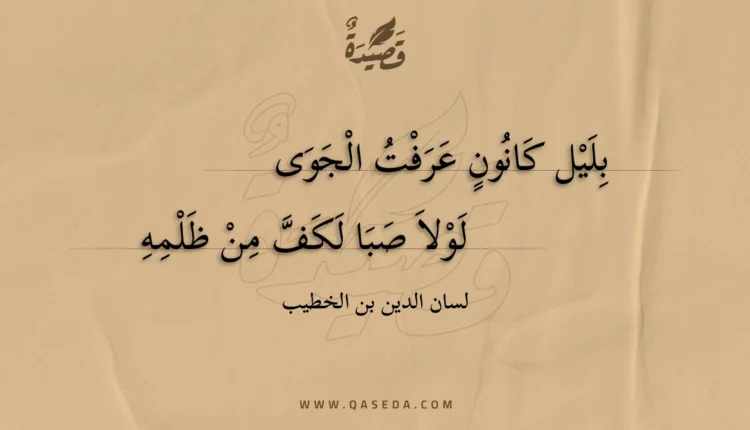 قَصِيْدَةٌ
بِلَيْل كَانُونٍ عَرَفْتُ الْجَوَى
لَوْلاَ صَبَا لَكَفَّ مِنْ ظَلْمِهِ
لسان الدين بن الخطيب
WWW.QASEDA.COM